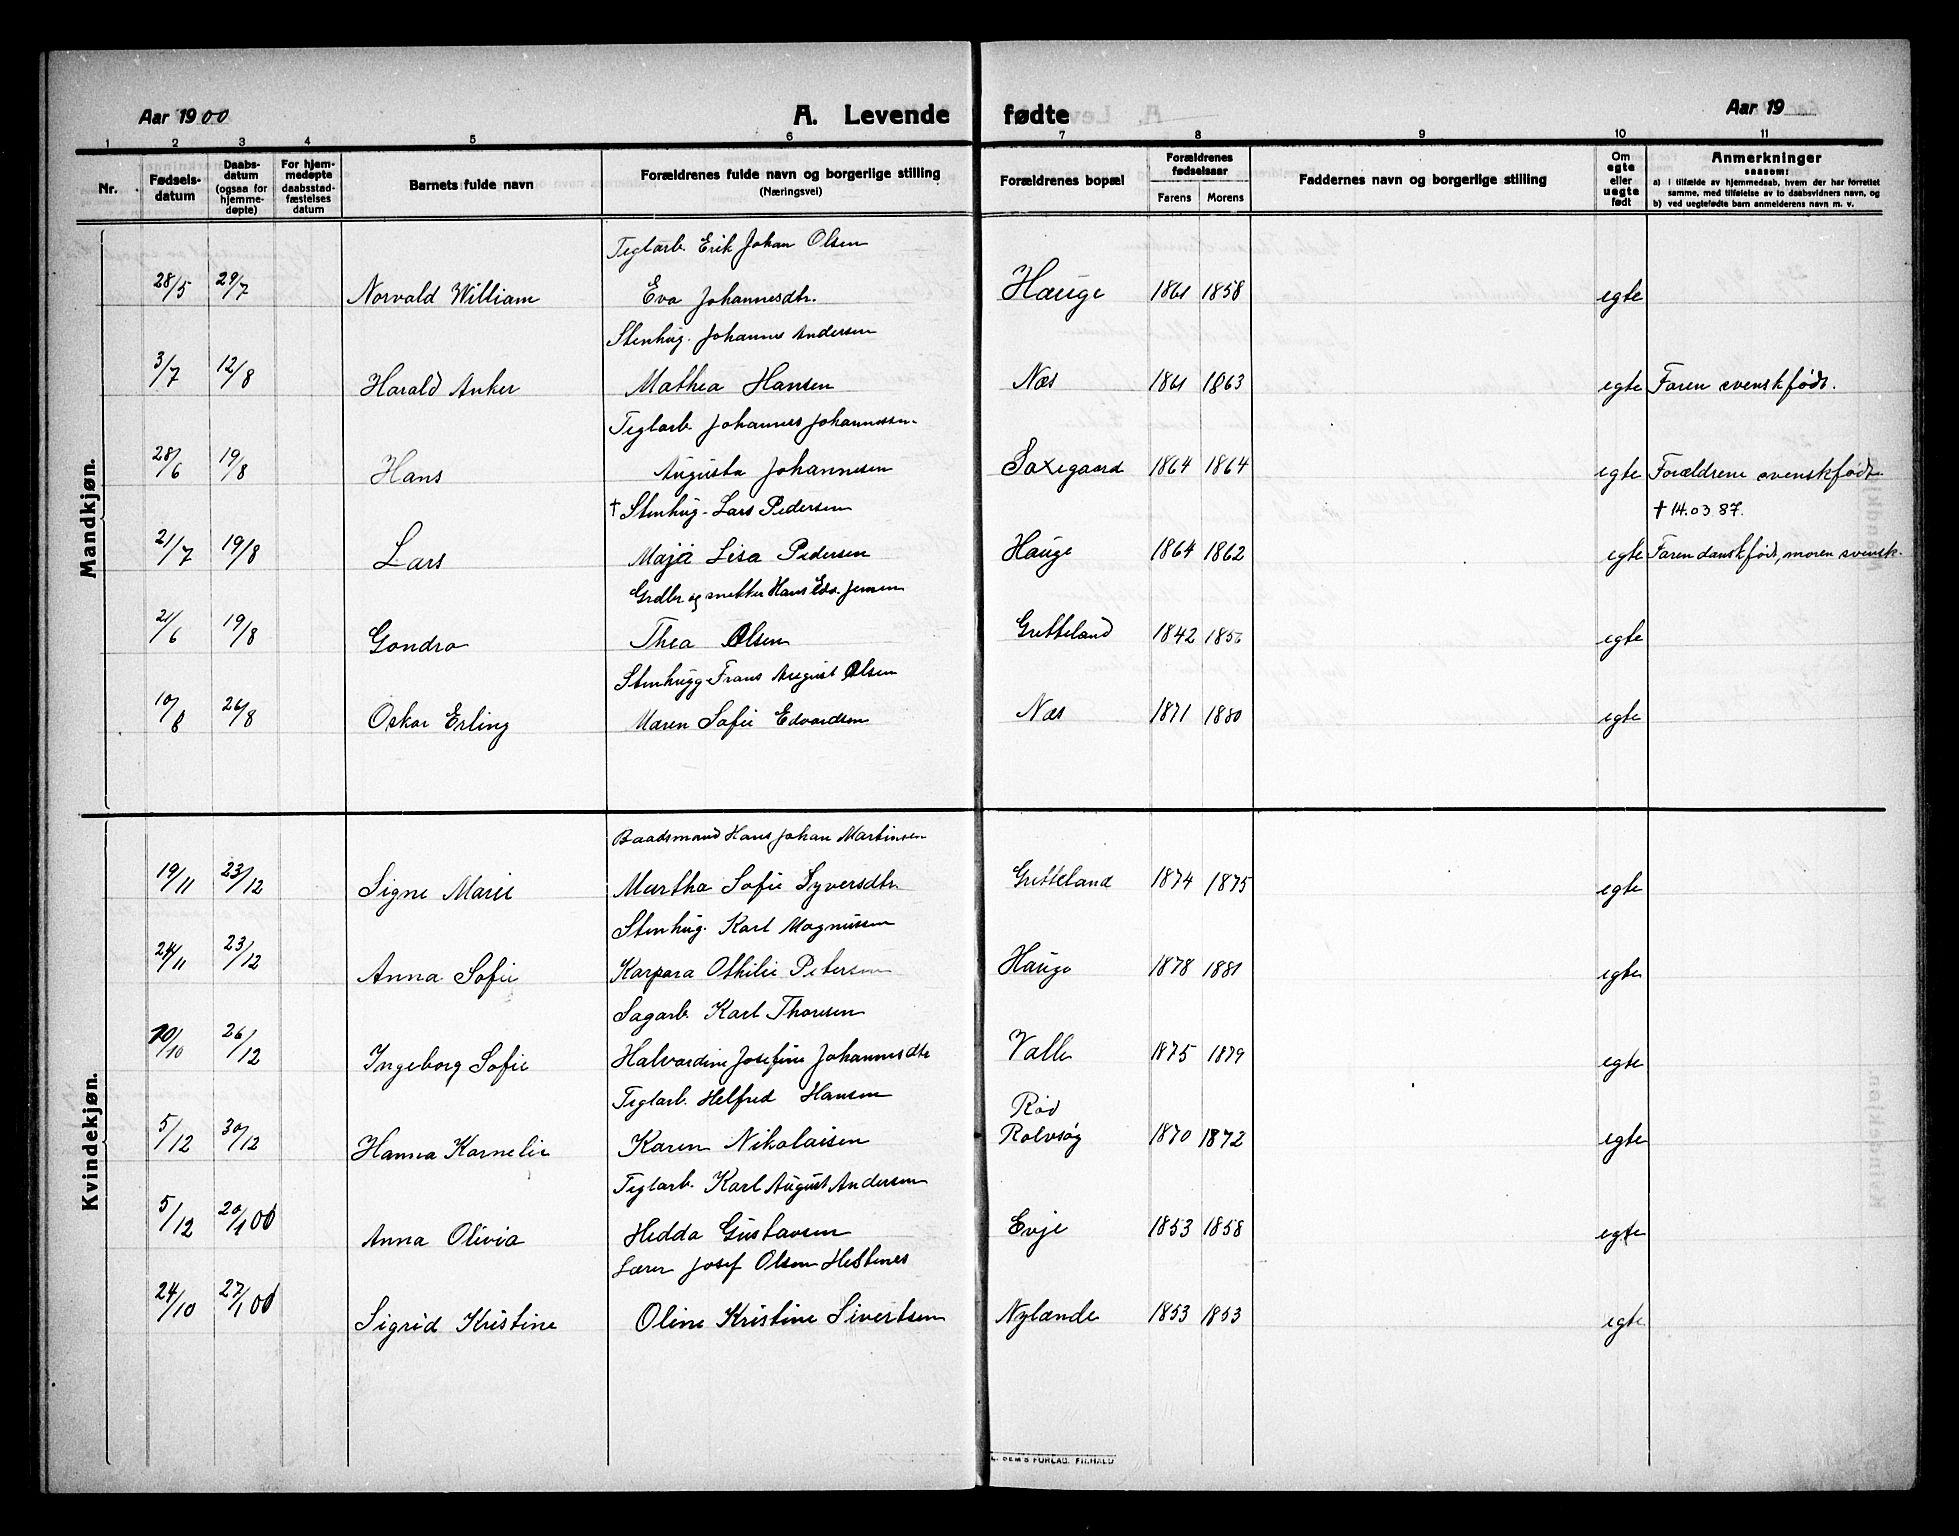 Aar 1900 A. Levende fødte Aar 19
1 2 3 4 5 6 7 8 9 10 11
Nr. Fødselsdatum Daabsdatum (ogsaa for hjemmedøpte) For hjemmedøpte daabsstadfæstelses datum Barnets fulde navn Forældrenes fulde navn og borgerlige stilling (Næringsvei) Forældrenes bopæl Forældrenes fødselsaar Farens Morens Faddernes navn og borgerlige stilling Om egte eller uegte født Anmerkninger saasom: a) i tilfælde av hjemmedaab, hvem der har forrettet samme, med tilføielse av to daabsvidners navn, og b) ved uegtefødte barn anmelderens navn m. v.
Mandkjøn.
Teglarb. Erik Johan Olsen
28/5 29/7 Norvald William Eva Johannesdtr. Hauge 1861 1858 egte
Stenhug. Johannes Andersen
3/7 12/8 Harald Anker Mathea Hansen Næs 1861 1863 egte Faren svenskfødt.
Teglarb. Johannes Johannessen
28/6 19/8 Hans Augusta Johannesen Saxegaard 1864 1864 egte Forældrene svenskfødt
† Stenhug. Lars Pedersen † 14.03.87.
21/7 19/8 Lars Maja Lisa Pedersen Hauge 1864 1862 egte Faren danskfødt, moren svensk.
Grdbr og snekker Hans Edv. Jensen
21/6 19/8 Gondro Thea Olsen Gretteland 1842 1856 egte
Stenhugg. Frans August Olsen
10/8 26/8 Oskar Erling Maren Sofie Edvardsen Næs 1871 1880 egte
Kvindekjøn.
Baadsmand Hans Johan Martinsen
19/11 23/12 Signe Marie Martha Sofie Syversdtr. Gretteland 1874 1875 egte
Stenhug. Karl Magnussen
24/11 23/12 Anna Sofie Karpara Othilie Petersen Hauge 1878 1881 egte
Sagarb. Karl Thoresen
10/10 26/12 Ingeborg Sofie Halvardine Josefine Johannesdtr Valle 1875 1879 egte
Teglarb. Helfred Hansen Rød
5/12 30/12 Hanna Kornelie Karen Nikolaisen Rolvsøy 1870 1872 egte
Teglarb. Karl August Andersen
5/12 20/1 00 Anna Olivia Hedda Gustavsen Evje 1853 1858 egte
Lærer Josef Olsen Hestenes
24/10 27/1 00 Sigrid Kristine Oline Kristine Sivertsen Nylænde 1853 1853 egte
FORLAG, FR.HALD